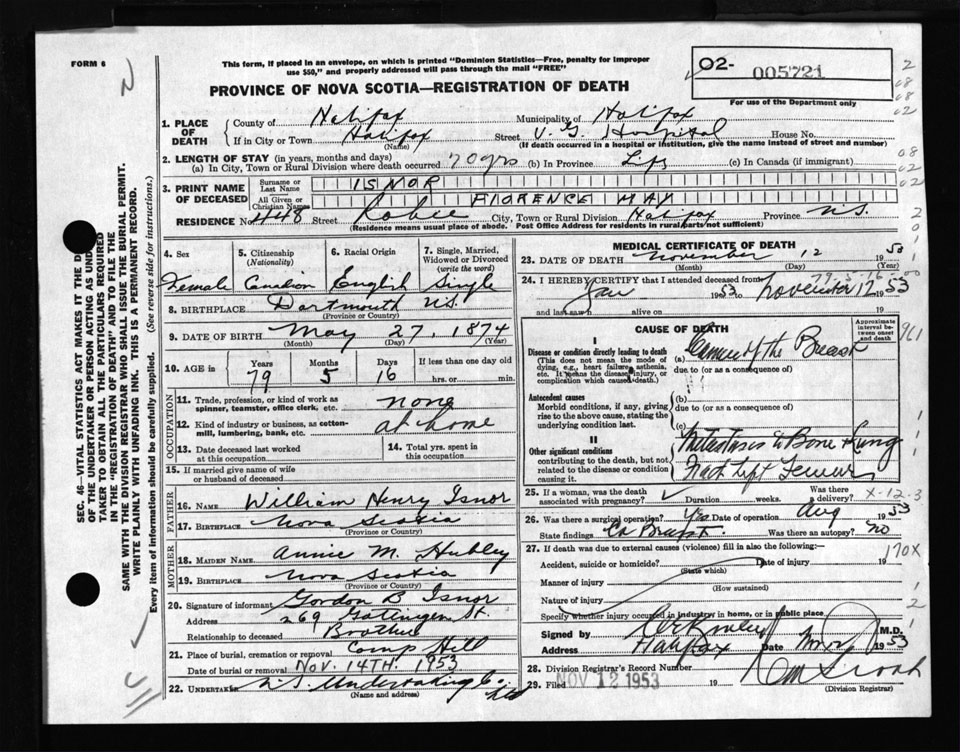 FORM 6
This form, if placed in an envelope, on which is printed "Dominion Statistics—Free, penalty for improper
use $50," and properly addressed will pass through the mail "FREE"
O2- 005721
For use of the Department only
PROVINCE OF NOVA SCOTIA—REGISTRATION OF DEATH
1. PLACE OF DEATH
County of Halifax Municipality of Halifax
If in City or Town Halifax Street V. G. Hospital House No.
(Name) (If death occurred in a hospital or institution, give the name instead of street and number)
2. LENGTH OF STAY (in years, months and days)
(a) In City, Town or Rural Division where death occurred 70 yrs (b) In Province Life (c) In Canada (if immigrant)
3. PRINT NAME OF DECEASED
Surname or Last Name ISNOR
All Given or Christian Names FLORENCE MAY
RESIDENCE No. 448 Street Robie City, Town or Rural Division Halifax Province N.S.
(Residence means usual place of abode. Post Office Address for residents in rural parts not sufficient)
4. Sex Female
5. Citizenship (Nationality)
6. Racial Origin English
7. Single, Married, Widowed or Divorced (write the word) Single
8. BIRTHPLACE Dartmouth N.S.
(Province or Country)
9. DATE OF BIRTH May 27, 1874
(Month) (Day) (Year)
10. AGE in Years 79 Months 5 Days 16 If less than one day old hrs. or min.
OCCUPATION
11. Trade, profession, or kind of work as spinner, teamster, office clerk, etc. none
12. Kind of industry or business, as cotton-mill, lumbering, bank, etc. at home
13. Date deceased last worked at this occupation
14. Total yrs. spent in this occupation
15. If married give name of wife or husband of deceased
FATHER
16. NAME William Henry Isnor
17. BIRTHPLACE Nova Scotia
(Province or Country)
MOTHER
18. MAIDEN NAME Annie M. Hubley
19. BIRTHPLACE Nova Scotia
(Province or Country)
20. Signature of informant Gordon B Isnor
Address 269 Gottingen St.
Relationship to deceased Brother
21. Place of burial, cremation or removal Camp Hill
Date of burial or removal Nov. 14TH. 1953
22. UNDERTAKER N.S. Undertaking Co. Ltd
(Name and address)
MEDICAL CERTIFICATE OF DEATH
23. DATE OF DEATH November 12 1953
(Month) (Day) (Year)
24. I HEREBY CERTIFY that I attended deceased from
Jan 1953 to November 12 1953
and last saw h alive on 19
CAUSE OF DEATH
Approximate interval between onset and death
I
Disease or condition directly leading to death
(This does not mean the mode of dying, e.g., heart failure, asthenia, etc. It means the disease, injury, or complication which caused death.)
(a) of the Breast
due to (or as a consequence of)
Antecedent causes
Morbid conditions, if any, giving rise to the above cause, stating the underlying condition last.
(b)
due to (or as a consequence of)
(c)
II
Other significant conditions
contributing to the death, but not related to the disease or condition causing it.
Metastasis to Bone Lung
Fract Left Femur
25. If a woman, was the death associated with pregnancy? Duration weeks. Was there a delivery?
26. Was there a surgical operation? Yes Date of operation Aug 1953
State findings Ca Breast. Was there an autopsy? no
27. If death was due to external causes (violence) fill in also the following:—
Accident, suicide or homicide? Date of injury 19
(State which)
Manner of injury
(How sustained)
Nature of injury
Specify whether injury occurred in industry in home, or in public place
Signed by M.D.
Address Halifax Date 1953
28. Division Registrar's Record Number
29. Filed NOV 12 1953 19
(Division Registrar)
SEC. 46—VITAL STATISTICS ACT MAKES IT THE
OF THE UNDERTAKER OR PERSON ACTING AS
TAKER TO OBTAIN ALL THE PARTICULARS REQUIRED
IN THE "REGISTRATION OF DEATH" AND TO FILE THE
SAME WITH THE DIVISION REGISTRAR WHO SHALL ISSUE THE BURIAL PERMIT.
WRITE PLAINLY WITH UNFADING INK. THIS IS A PERMANENT RECORD.
Every item of information should be carefully supplied. (See reverse side for instructions.)
170X